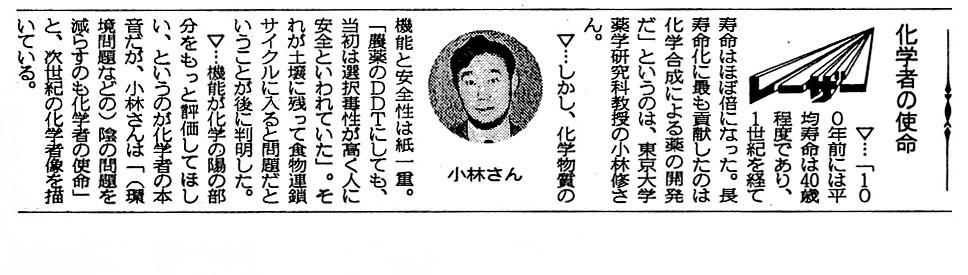 化学者の使命
レーザー
▽…「10
0年前には平
均寿命は40歳
程度であり、
1世紀を経て
寿命はほぼ倍になった。長
寿命化に最も貢献したのは
化学合成による薬の開発
だ」というのは、東京大学
薬学研究科教授の小林修さ
ん。
▽…しかし、化学物質の
小林さん
機能と安全性は紙一重。
「農薬のDDTにしても、
当初は選択毒性が高く人に
安全といわれていた」。そ
れが土壌に残って食物連鎖
サイクルに入ると問題だと
いうことが後に判明した。
▽…機能が化学の陽の部
分をもっと評価してほし
い、というのが化学者の本
音だが、小林さんは「(環
境問題などの)陰の問題を
減らすのも化学者の使命」
と、次世紀の化学者像を描
いている。